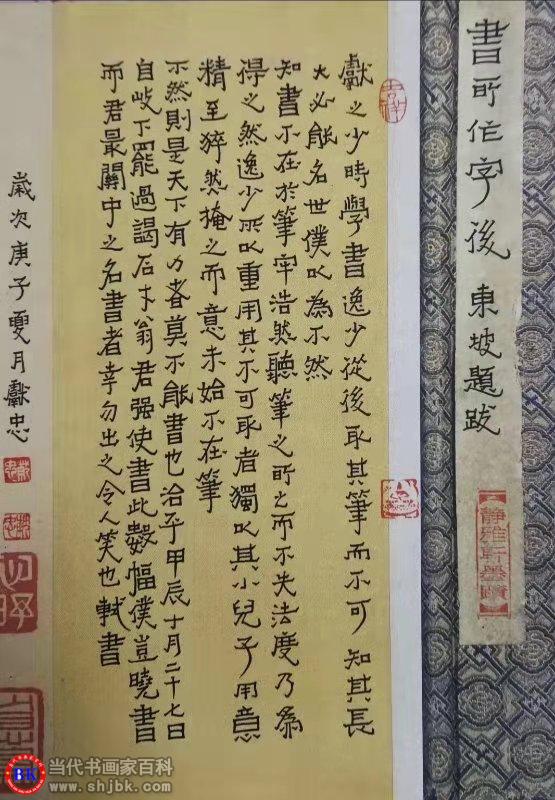 書所作字後 東坡題跋
静雅軒墨蹟
吉祥
獻之少時學書逸少從後取其筆而不可 知其長
大必能名世僕以為不然
知書不在於筆牢浩然聽筆之所之而不失法度乃為
得之然逸少所以重用其不可取者獨以其小兒子用意
精至猝然掩之而意未始不在筆
不然則是天下有力者莫不能書也治平甲辰十月二十七日
自岐下罷過謁石才翁君强使書此數幅僕豈曉書
而君最關中之名書者幸勿出之令人笑也軾書
歲次庚子夏月獻忠
BK
当代书画家百科
www.shjbk.com